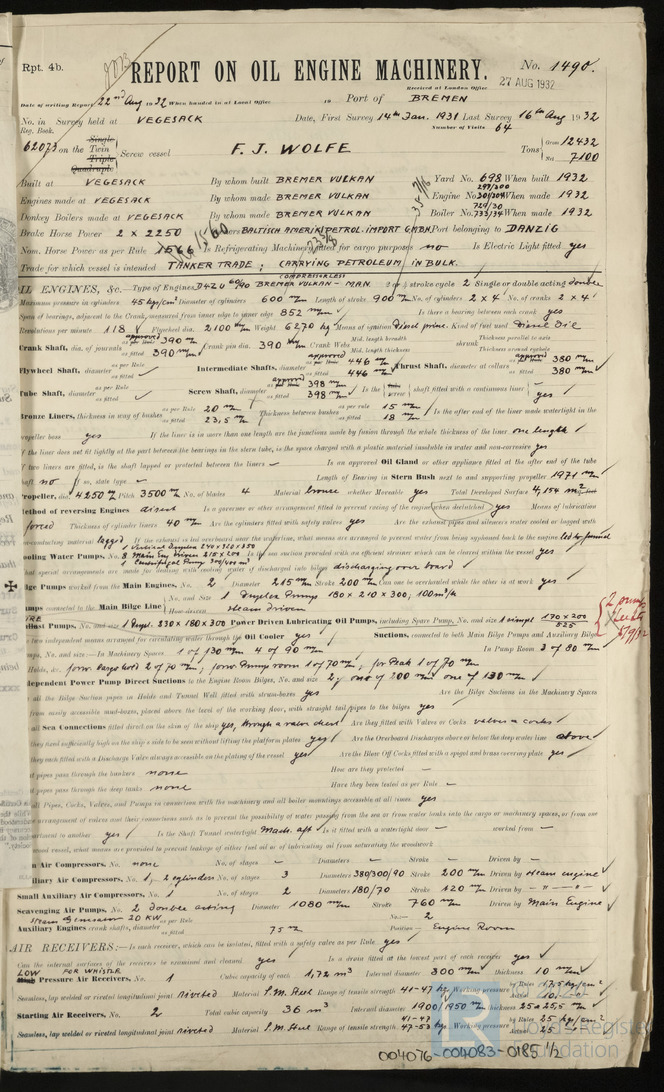 Rpt. 4b.
REPORT ON OIL ENGINE MACHINERY.
No. 1490.
Received at London Office
27 AUG 1932
Date of writing Report 22nd Aug 1932 When handed in at Local Office 19 Port of BREMEN
No. in Survey held at VEGESACK Date, First Survey 14th Jan. 1931 Last Survey 16th Aug 1932
Reg. Book. Number of Visits 64
62073 on the Single Twin Triple Quadruple Screw vessel F. J. WOLFE Tons Gross 12432 Net 7100
Built at VEGESACK By whom built BREMER VULKAN Yard No. 698 When built 1932
Engines made at VEGESACK By whom made BREMER VULKAN Engine No. When made 1932
Donkey Boilers made at VEGESACK By whom made BREMER VULKAN Boiler No. When made 1932
Brake Horse Power 2 x 2250 BALTISCH AMERIK. PETROL. IMPORT GMBH. Port belonging to DANZIG
Nom. Horse Power as per Rule Is Refrigerating Machinery fitted for cargo purposes no Is Electric Light fitted yes
Trade for which vessel is intended TANKER TRADE ; CARRYING PETROLEUM IN BULK.
OIL ENGINES, &c. Type of Engines COMPRESSORLESS BREMER VULKAN - MAN. 2 or 4 stroke cycle 2 Single or double acting double
Maximum pressure in cylinders 45 kg/cm² Diameter of cylinders 600 m/m Length of stroke 900 m/m No. of cylinders 2 x 4 No. of cranks 2 x 4
Span of bearings, adjacent to the Crank, measured from inner edge to inner edge 852 m/m Is there a bearing between each crank yes
Revolutions per minute 118 Flywheel dia. 2100 m/m Weight 6270 kg Means of ignition Diesel princ. Kind of fuel used Diesel Oil
Crank Shaft, dia. of journals approved 390 m/m as fitted 390 m/m Crank pin dia. 390 m/m Crank Webs Mid. length breadth Mid. length thickness shrunk Thickness parallel to axis Thickness around eyehole
Flywheel Shaft, diameter Intermediate Shafts, diameter approved 446 m/m as fitted 446 m/m Thrust Shaft, diameter at collars approved 380 m/m as fitted 380 m/m
Tube Shaft, diameter as per Rule as fitted Screw Shaft, diameter approved 398 m/m as fitted 398 m/m Is the screw shaft fitted with a continuous liner yes
Bronze Liners, thickness in way of bushes as per rule 20 m/m as fitted 23,5 m/m Thickness between bushes as per rule 15 m/m as fitted 18 m/m Is the after end of the liner made watertight in the
propeller boss yes If the liner is in more than one length are the junctions made by fusion through the whole thickness of the liner one length
If the liner does not fit tightly at the part between the bearings in the stern tube, is the space charged with a plastic material insoluble in water and non-corrosive yes
If two liners are fitted, is the shaft lapped or protected between the liners – Is an approved Oil Gland or other appliance fitted at the after end of the tube
shaft no If so, state type – Length of Bearing in Stern Bush next to and supporting propeller 1971 m/m
Propeller, dia. 4250 m/m Pitch 3500 m/m No. of blades 4 Material bronze whether Moveable yes Total Developed Surface 4,154 m²
Method of reversing Engines direct Is a governor or other arrangement fitted to prevent racing of the engine when declutched yes Means of lubrication
forced Thickness of cylinder liners 40 m/m Are the cylinders fitted with safety valves yes Are the exhaust pipes and silencers water cooled or lagged with
non-conducting material lagged If the exhaust is led overboard near the waterline, what means are arranged to prevent water from being syphoned back to the engine led to funnel
Cooling Water Pumps, No. 1 Vertical Duplex 240x310x350 Is the sea suction provided with an efficient strainer which can be cleared within the vessel yes
What special arrangements are made for dealing with cooling water if discharged into bilges discharging over board
Bilge Pumps worked from the Main Engines, No. 2 Diameter 215 m/m Stroke 200 m/m Can one be overhauled while the other is at work yes
Pumps connected to the Main Bilge Line No. and Size 1 Duplex Pump 180 x 210 x 300, 100 m³/h
How driven steam driven
Ballast Pumps, No. and size 1 Dupl. 230 x 180 x 300 Power Driven Lubricating Oil Pumps, including Spare Pump, No. and size 1 simpl. 170 x 200
Are two independent means arranged for circulating water through the Oil Cooler yes Suctions, connected to both Main Bilge Pumps and Auxiliary Bilge
Pumps, No. and size:—In Machinery Spaces 1 of 130 m/m 4 of 90 m/m In Pump Room 3 of 80 m/m
In Holds, &c. forw. cargo hold 2 of 70 m/m ; forw. Pump room 1 of 70 m/m ; for Peak 1 of 70 m/m
Independent Power Pump Direct Suctions to the Engine Room Bilges, No. and size 2; one of 200 m/m one of 130 m/m
Are all the Bilge Suction pipes in Holds and Tunnel Well fitted with strum-boxes yes Are the Bilge Suctions in the Machinery Spaces
from easily accessible mud-boxes, placed above the level of the working floor, with straight tail pipes to the bilges yes
Are all Sea Connections fitted direct on the skin of the ship yes, through a valve chest Are they fitted with Valves or Cocks valves & cocks
Are they fixed sufficiently high on the ship's side to be seen without lifting the platform plates yes Are the Overboard Discharges above or below the deep water line above
Are they each fitted with a Discharge Valve always accessible on the plating of the vessel yes Are the Blow Off Cocks fitted with a spigot and brass covering plate yes
What pipes pass through the bunkers none How are they protected –
What pipes pass through the deep tanks none Have they been tested as per Rule –
Are all Pipes, Cocks, Valves, and Pumps in connection with the machinery and all boiler mountings accessible at all times yes
Is the arrangement of valves and their connections such as to prevent the possibility of water passing from the sea or from water tanks into the cargo or machinery spaces, or from one
compartment to another yes Is the Shaft Tunnel watertight Mach. aft Is it fitted with a watertight door – worked from –
If a wood vessel, what means are provided to prevent leakage of either fuel oil or lubricating oil from saturating the woodwork
Main Air Compressors, No. none No. of stages – Diameters – Stroke – Driven by –
Auxiliary Air Compressors, No. 1, - 2 cylinders No. of stages 3 Diameters 380/300/90 Stroke 200 m/m Driven by steam engine
Small Auxiliary Air Compressors, No. 1 No. of stages 2 Diameters 180/70 Stroke 120 m/m Driven by – " – " –
Scavenging Air Pumps, No. 2 double acting Diameter 1080 m/m Stroke 760 m/m Driven by Main Engine
Auxiliary Engines crank shafts, diameter as per Rule as fitted 75 m/m No. 2 Position Engine Room
AIR RECEIVERS:—Is each receiver, which can be isolated, fitted with a safety valve as per Rule yes
Can the internal surfaces of the receivers be examined and cleaned yes Is a drain fitted at the lowest part of each receiver yes
LOW Pressure Air Receivers, No. FOR WHISTLE 1 Cubic capacity of each 1,72 m³ Internal diameter 800 m/m thickness 10 m/m
Seamless, lap welded or riveted longitudinal joint riveted Material S.M. Steel Range of tensile strength 41-47 kg Working pressure by Rules 17,5 kg/cm²
Starting Air Receivers, No. 2 Total cubic capacity 36 m³ Internal diameter 1900/1950 m/m thickness 25 x 25,5 m/m
Seamless, lap welded or riveted longitudinal joint riveted Material S.M. Steel Range of tensile strength 41-47 47-53 kg Working pressure by Rules 25 kg/cm² Actual 25
Lloyd's Register
Foundation
004076-004083-0185 1/2